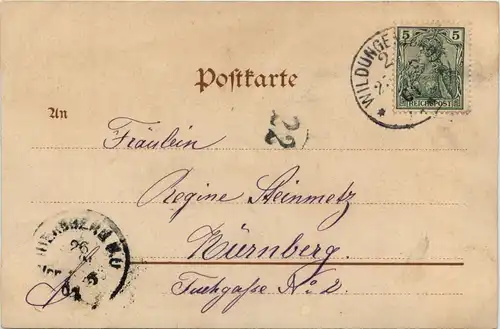 WILDUNGEN
5 5
REICHSPOST
Postkarte
An
22
Fräulein
Regine Steinmetz
Nürnberg.
Tuchgaße No 2.
26